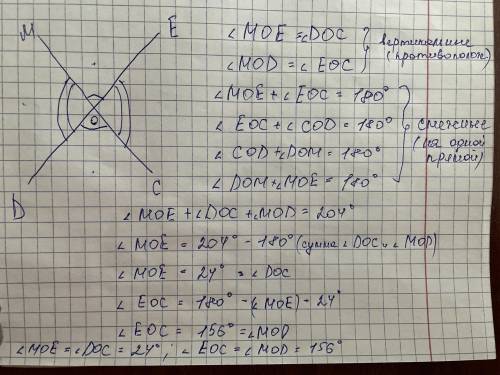 M
E
O
D
C
∠MOE = ∠DOC
∠MOD = ∠EOC
вертикальные
(противополож)
∠MOE + ∠EOC = 180°
∠EOC + ∠COD = 180°
∠COD + ∠DOM = 180°
∠DOM + ∠MOE = 180°
смежные
(на одной
прямой)
∠MOE + ∠DOC + ∠MOD = 204°
∠MOE = 204° - 180° (сумма ∠DOC и ∠MOD)
∠MOE = 24° = ∠DOC
∠EOC = 180° - (∠MOE) - 24°
∠EOC = 156° = ∠MOD
∠MOE = ∠DOC = 24°; ∠EOC = ∠MOD = 156°